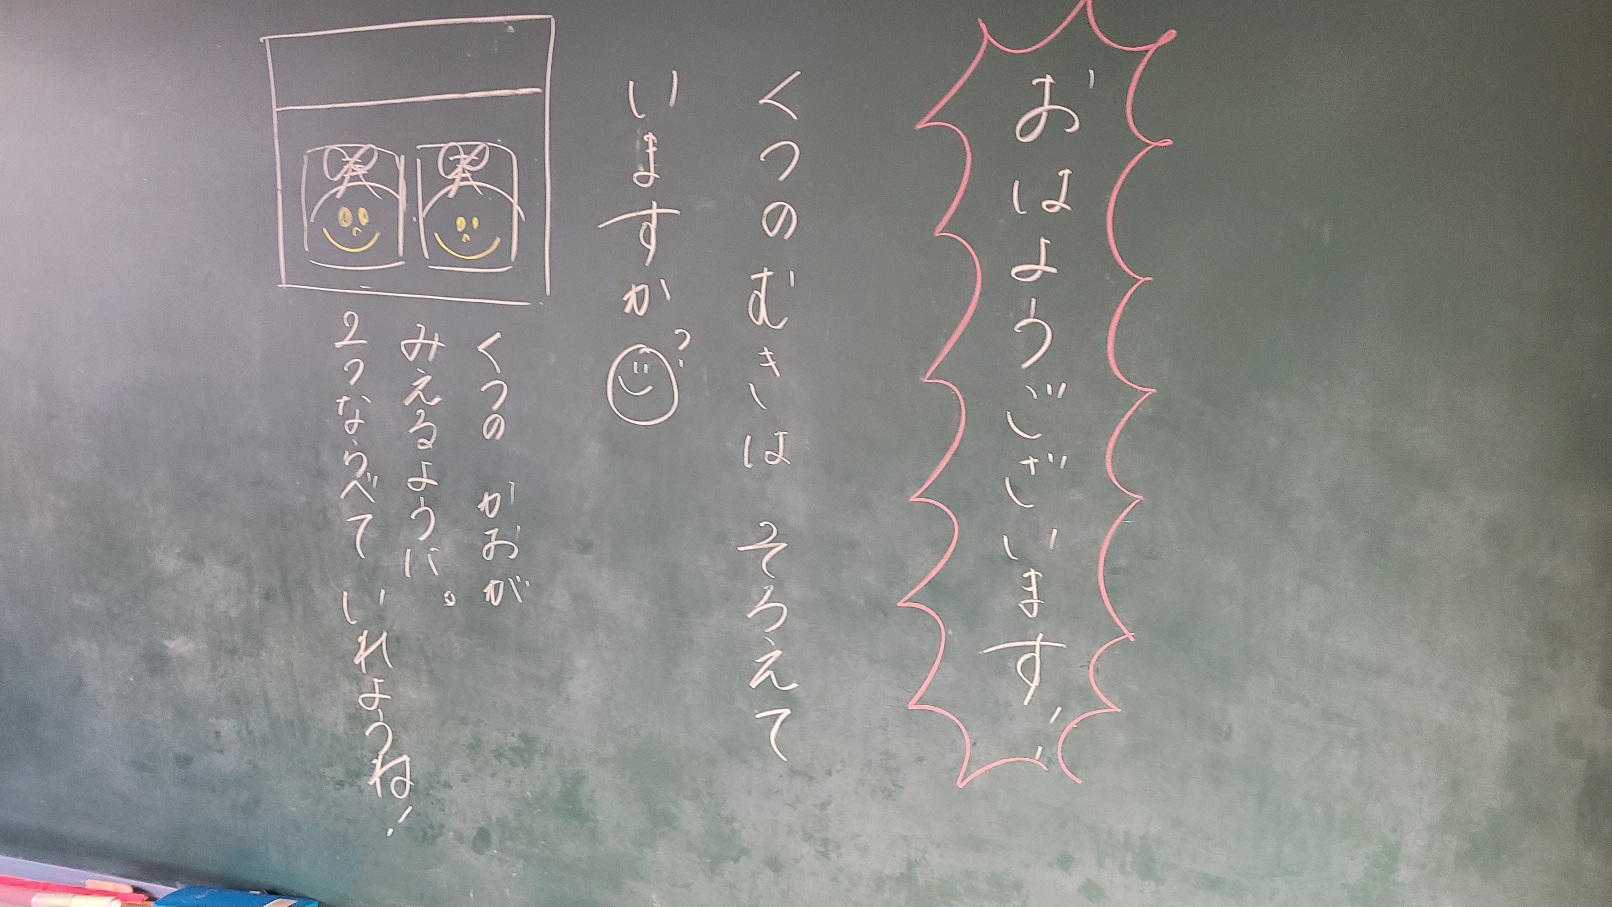 おはようございます!
くつのむきは そろえて
いますか?
くつの かおが
みえるように。
2つならべて いれようね!